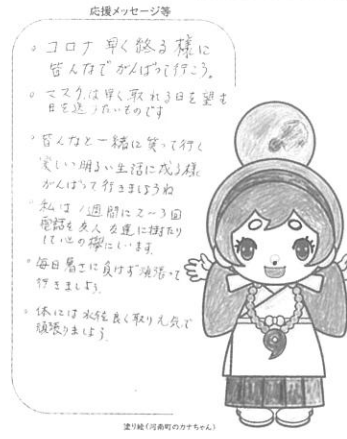 応援メッセージ等
。コロナ早く終る様に
皆んなでがんばって行こう。
。マスクは早く取れる日を望も
日を送りたいものです
。皆んなと一緒に笑って行く
楽しい明るい生活に成る様
がんばって行きましょうね
。私は1週間に2～3回
電話を友人友達に掛たり
して心の糧にしいます
。毎日暑さに負けず頑張って
行きましょう。
。体には水分を良く取り元気で
頑張りましょう。
塗り絵《河南町のカナちゃん》